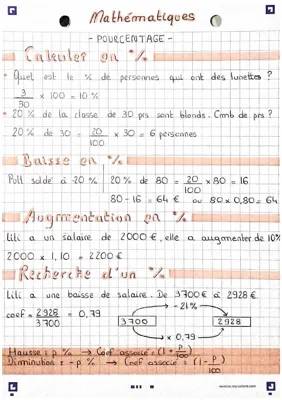 Mathématiques
- POURCENTAGE -
Calculer en %
• Quel est le % de personnes qui ont des lunettes ?
3/30 × 100 = 10 %
• 20 % de la classe de 30 prs sont blonds. Cmb de prs ?
20 % de 30 = 20/100 × 30 = 6 personnes
Baisse en %
Pull soldé à -20 % | 20 % de 80 = 20/100 × 80 = 16
80 - 16 = 64 € ou 80 × 0,80 = 64
Augmentation en %
Lili a un salaire de 2000 €, elle a augmenter de 10%
2000 × 1,10 = 2200 €
Recherche d'un %
Lili a une baisse de salaire. De 3700 € à 2928 €.
coef = 2928/3700 = 0,79
-21%
3700
2928
× 0,79
Hausse : p % → Coef associé = (1 + p/100)
Diminution : - p % → Coef associé = (1 - p/100)